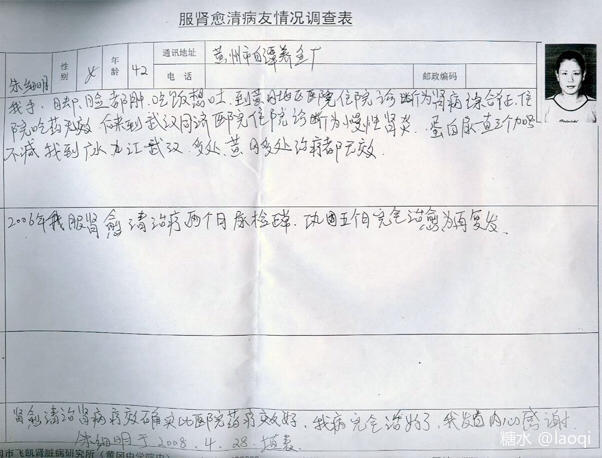 服肾愈清病友情况调查表
朱细明 性别 女 年龄 42 通讯地址 黄州市白潭养鱼厂
电话 邮政编码
我手、脚、脸都肿,吃饭想吐,到黄冈地区医院住院诊断为肾病综合征,住
院吃药无效 后来到武汉同济医院住院诊断为慢性肾炎. 蛋白尿查三个加号
不减 我到广水 九江 武汉 多处、黄冈多处治疗都无效.
2006年我服肾愈清治疗两个月尿检正常.巩固五个月完全治愈为再复发.
肾愈清治肾病疗效确实比医院药疗效好,我病完全治好了,我发自内心感谢.
朱细明于2008.4.28.填表
冈市飞凯肾脏病研究所(黄冈中学院内)
糖水 @laoqi